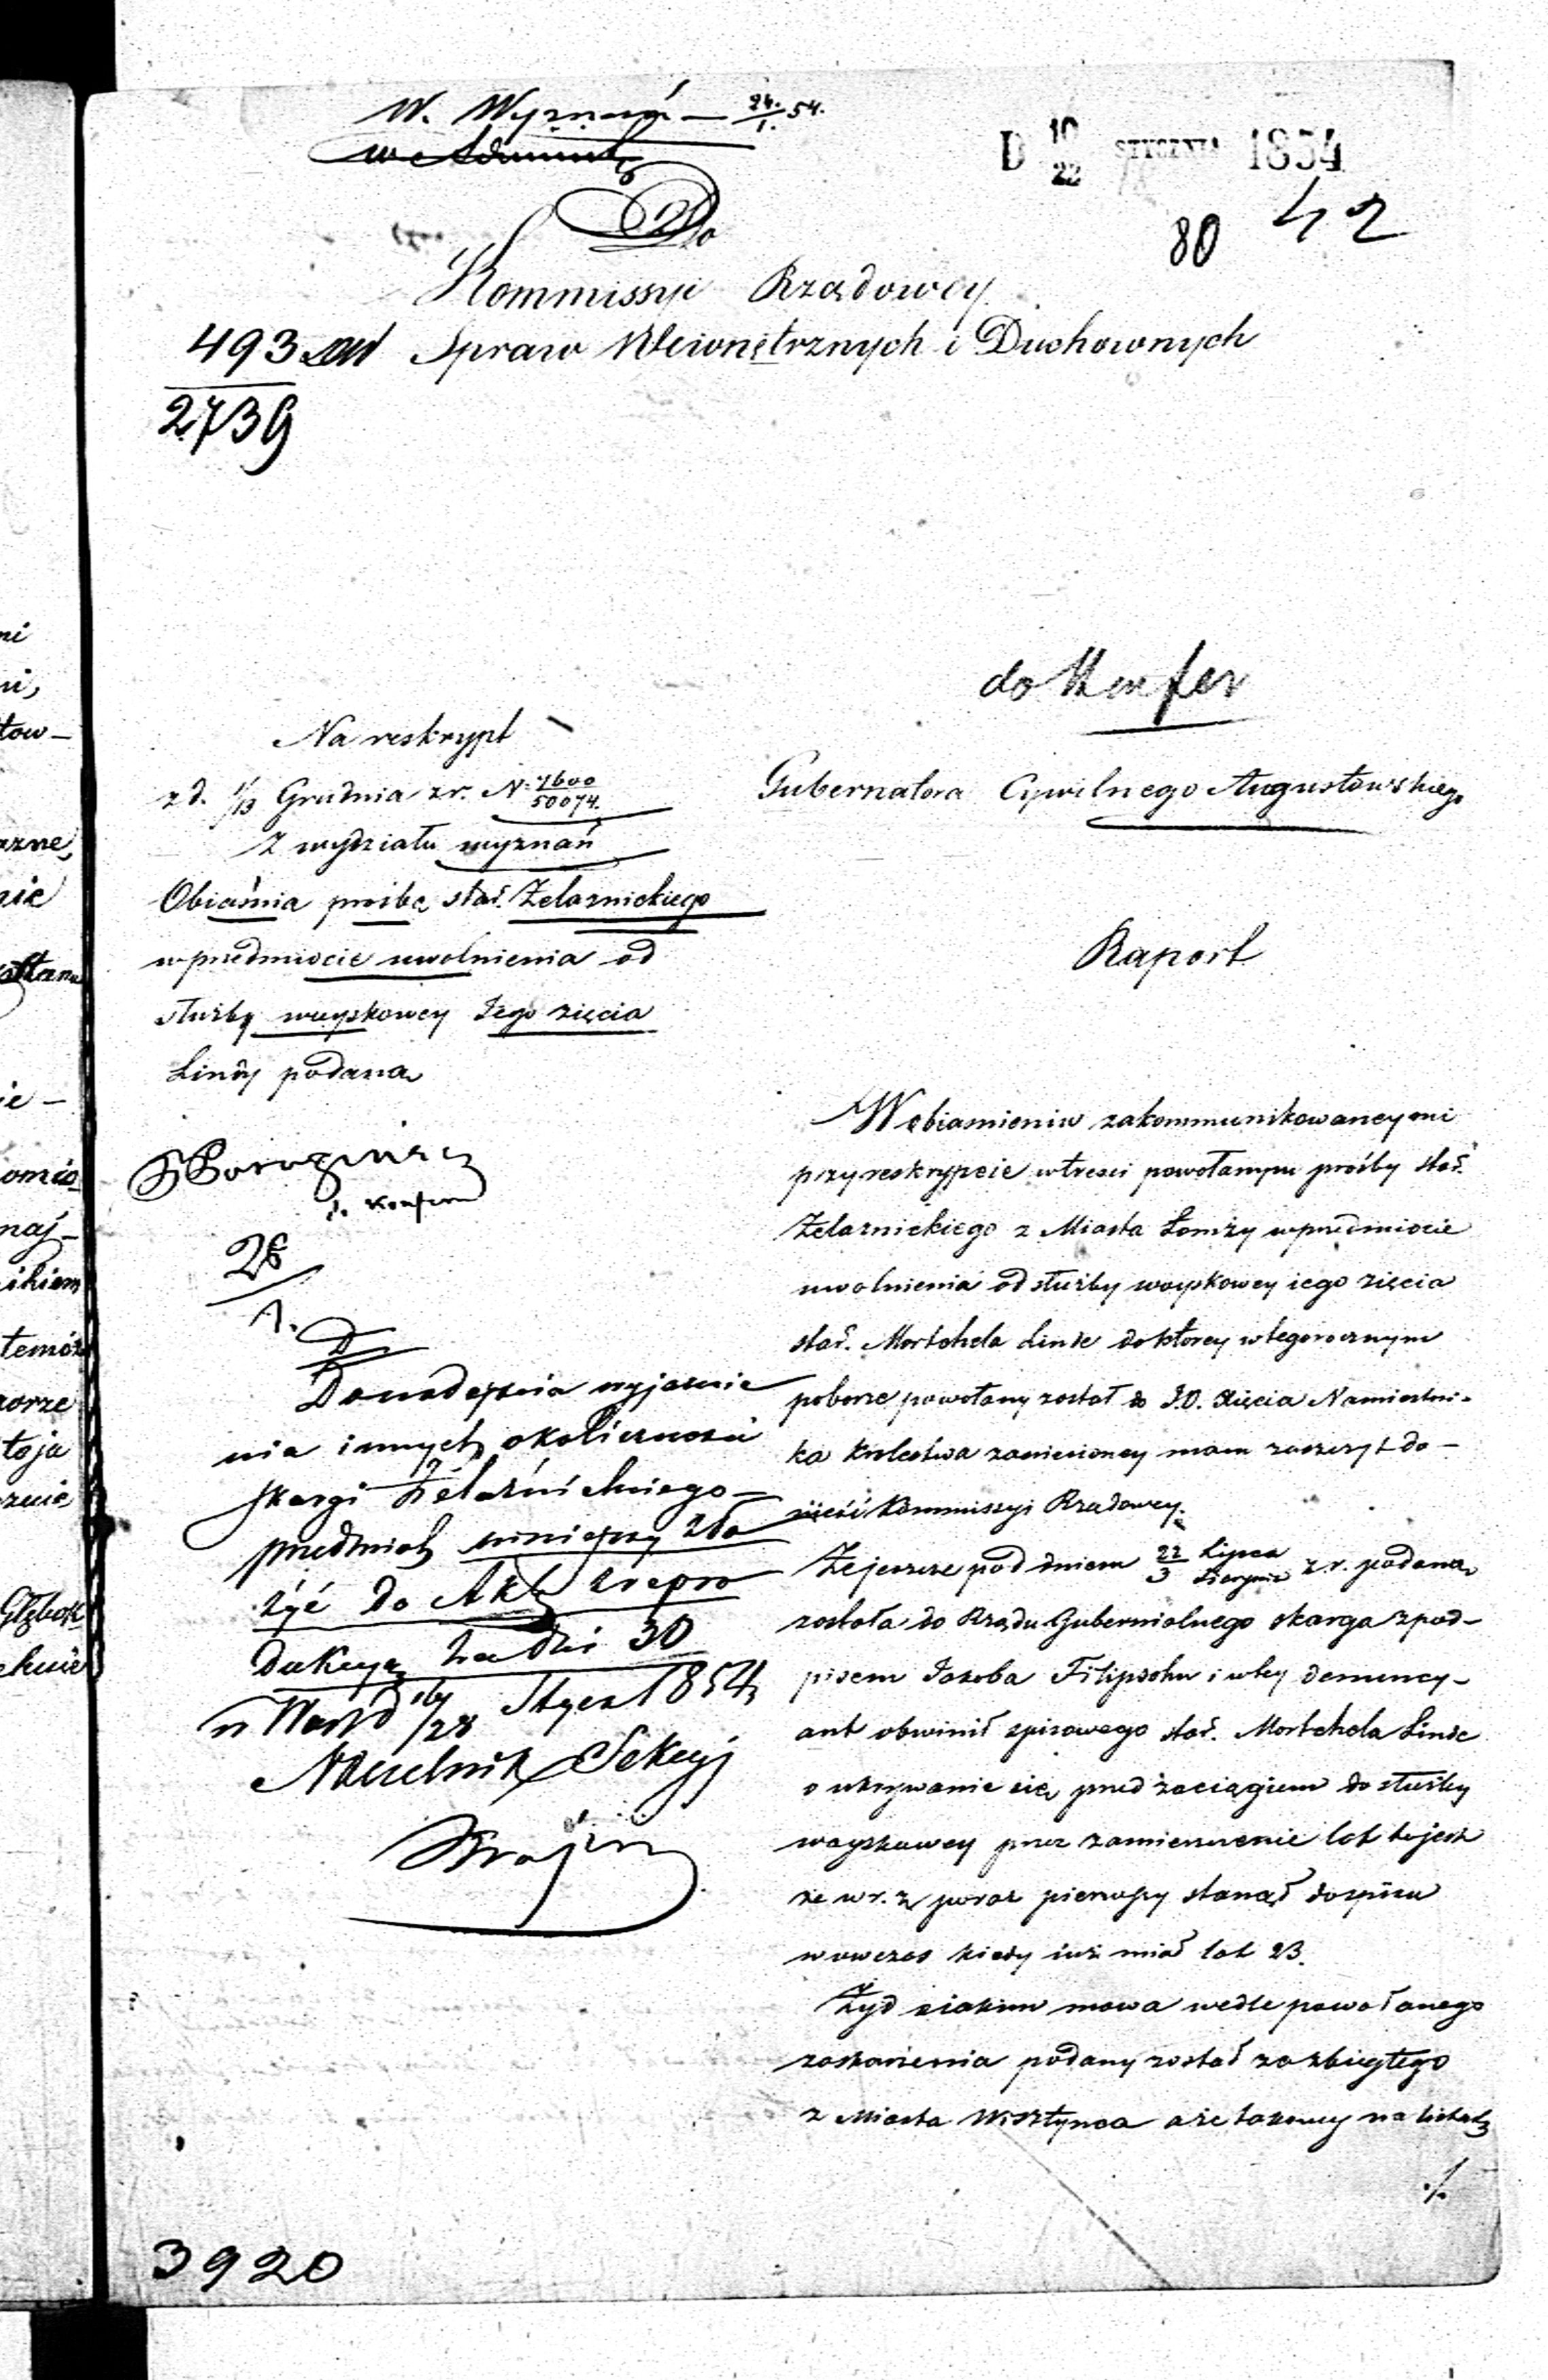 W. Wyznań — 24./1. 54.
D 10/22 STYCZNIA 1854
80 42
Do
Kommissyi Rządowey
493
Spraw Wewnętrznych i Duchownych
2739
Na reskrypt
z d. 1/13 Grudnia z r. N. 7600/50074.
z wydziału wyznań
Obiaśnia prośbę star. Zelaznickiego
w przedmiocie uwolnienia od
służby woyskowey Jego zięcia
Lindy podaną
28/1.
D
Do nadejścia wyjaśnie
nia innych okoliczności
skargi Żelaźnickiego —
przedmiot niniejszy zło
żyć do Akt z repro
dukcyą za dni 30
w Warsz d 16/28 Stycz 1854
Naczelnik Sekcyi
do
Gubernatora Cywilnego Augustowskiego
Raport
W obiasnieniu zakommunikowaney mi
przy reskrypcie w tresci powołanym prośby star.
Zelaznickiego z Miasta Łomży w przedmiocie
uwolnienia od służby woyskowey iego zięcia
star. Mortchela Linde do którey w tegorocznym
poborze powołany został do J.O. Xięcia Namiestni-
ka Krolestwa zaniesioney mam zaszczyt do-
nieść Kommissyi Rządowey.
Ze jeszcze pod dniem 22/3 Lipca/Sierpnia z. r. podana
została do Rządu Gubernialnego skarga z pod-
pisem Jakoba Filipsohn i w tey denuncy-
ant obwinił spisowego star. Mortchela Linde
o ukrywanie się przed zaciągiem do służby
woyskowey przez zamienienie lat to jest
że w r. z. poraz pierwszy stanął do spisu
wowczas kiedy iuż miał lat 23.
Żyd o iakim mowa wedle powołanego
zaskarżenia podany został za zbiegłego
z Miasta Wisztynca a że takowy na listach
./.
3920